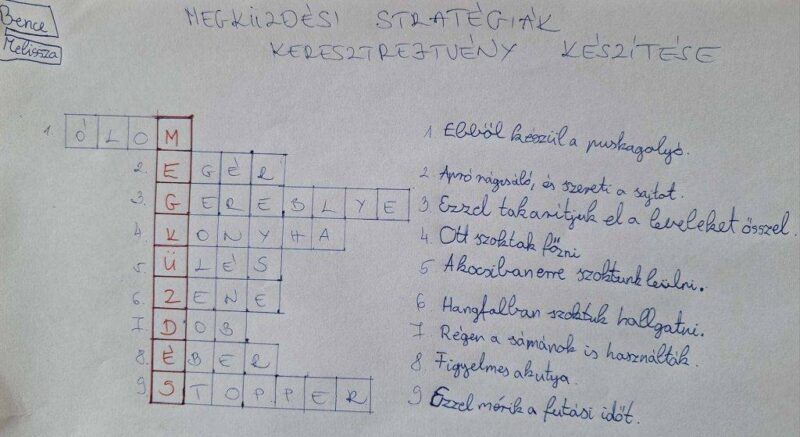 Bence
Melissza
MEGKÜZDÉSI STRATÉGIÁK
KERESZTREJTVÉNY KÉSZÍTÉSE
1. ÓLOM
2. EGÉR
3. GEREBLYE
4 KONYHA
5 ÜLÉS
6. ZENE
7 DOB
8 ÉBER
9 STOPPER
1 Ebből készül a puskagolyó.
2 Apró rágcsáló, és szereti a sajtot.
3 Ezzel takarítjuk el a leveleket ősszel.
4 Ott szoktak főzni
5 A kocsiban erre szoktunk leülni.
6 Hangfalban szoktuk hallgatni.
7 Régen a sámánok is használták.
8 Figyelmes a kutya.
9 Ezzel mérik a futási időt.